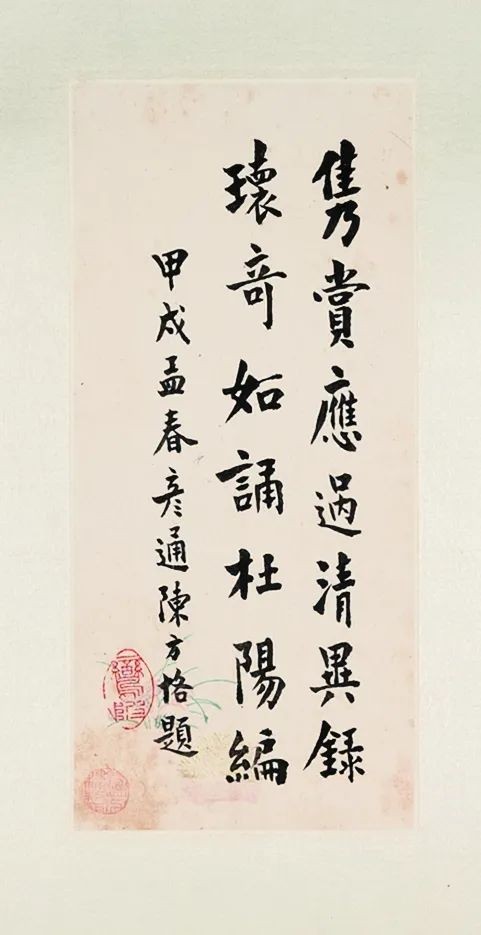 雋賞應過清異錄
瓌奇如誦杜陽編
甲戌孟春彥通陳方恪題